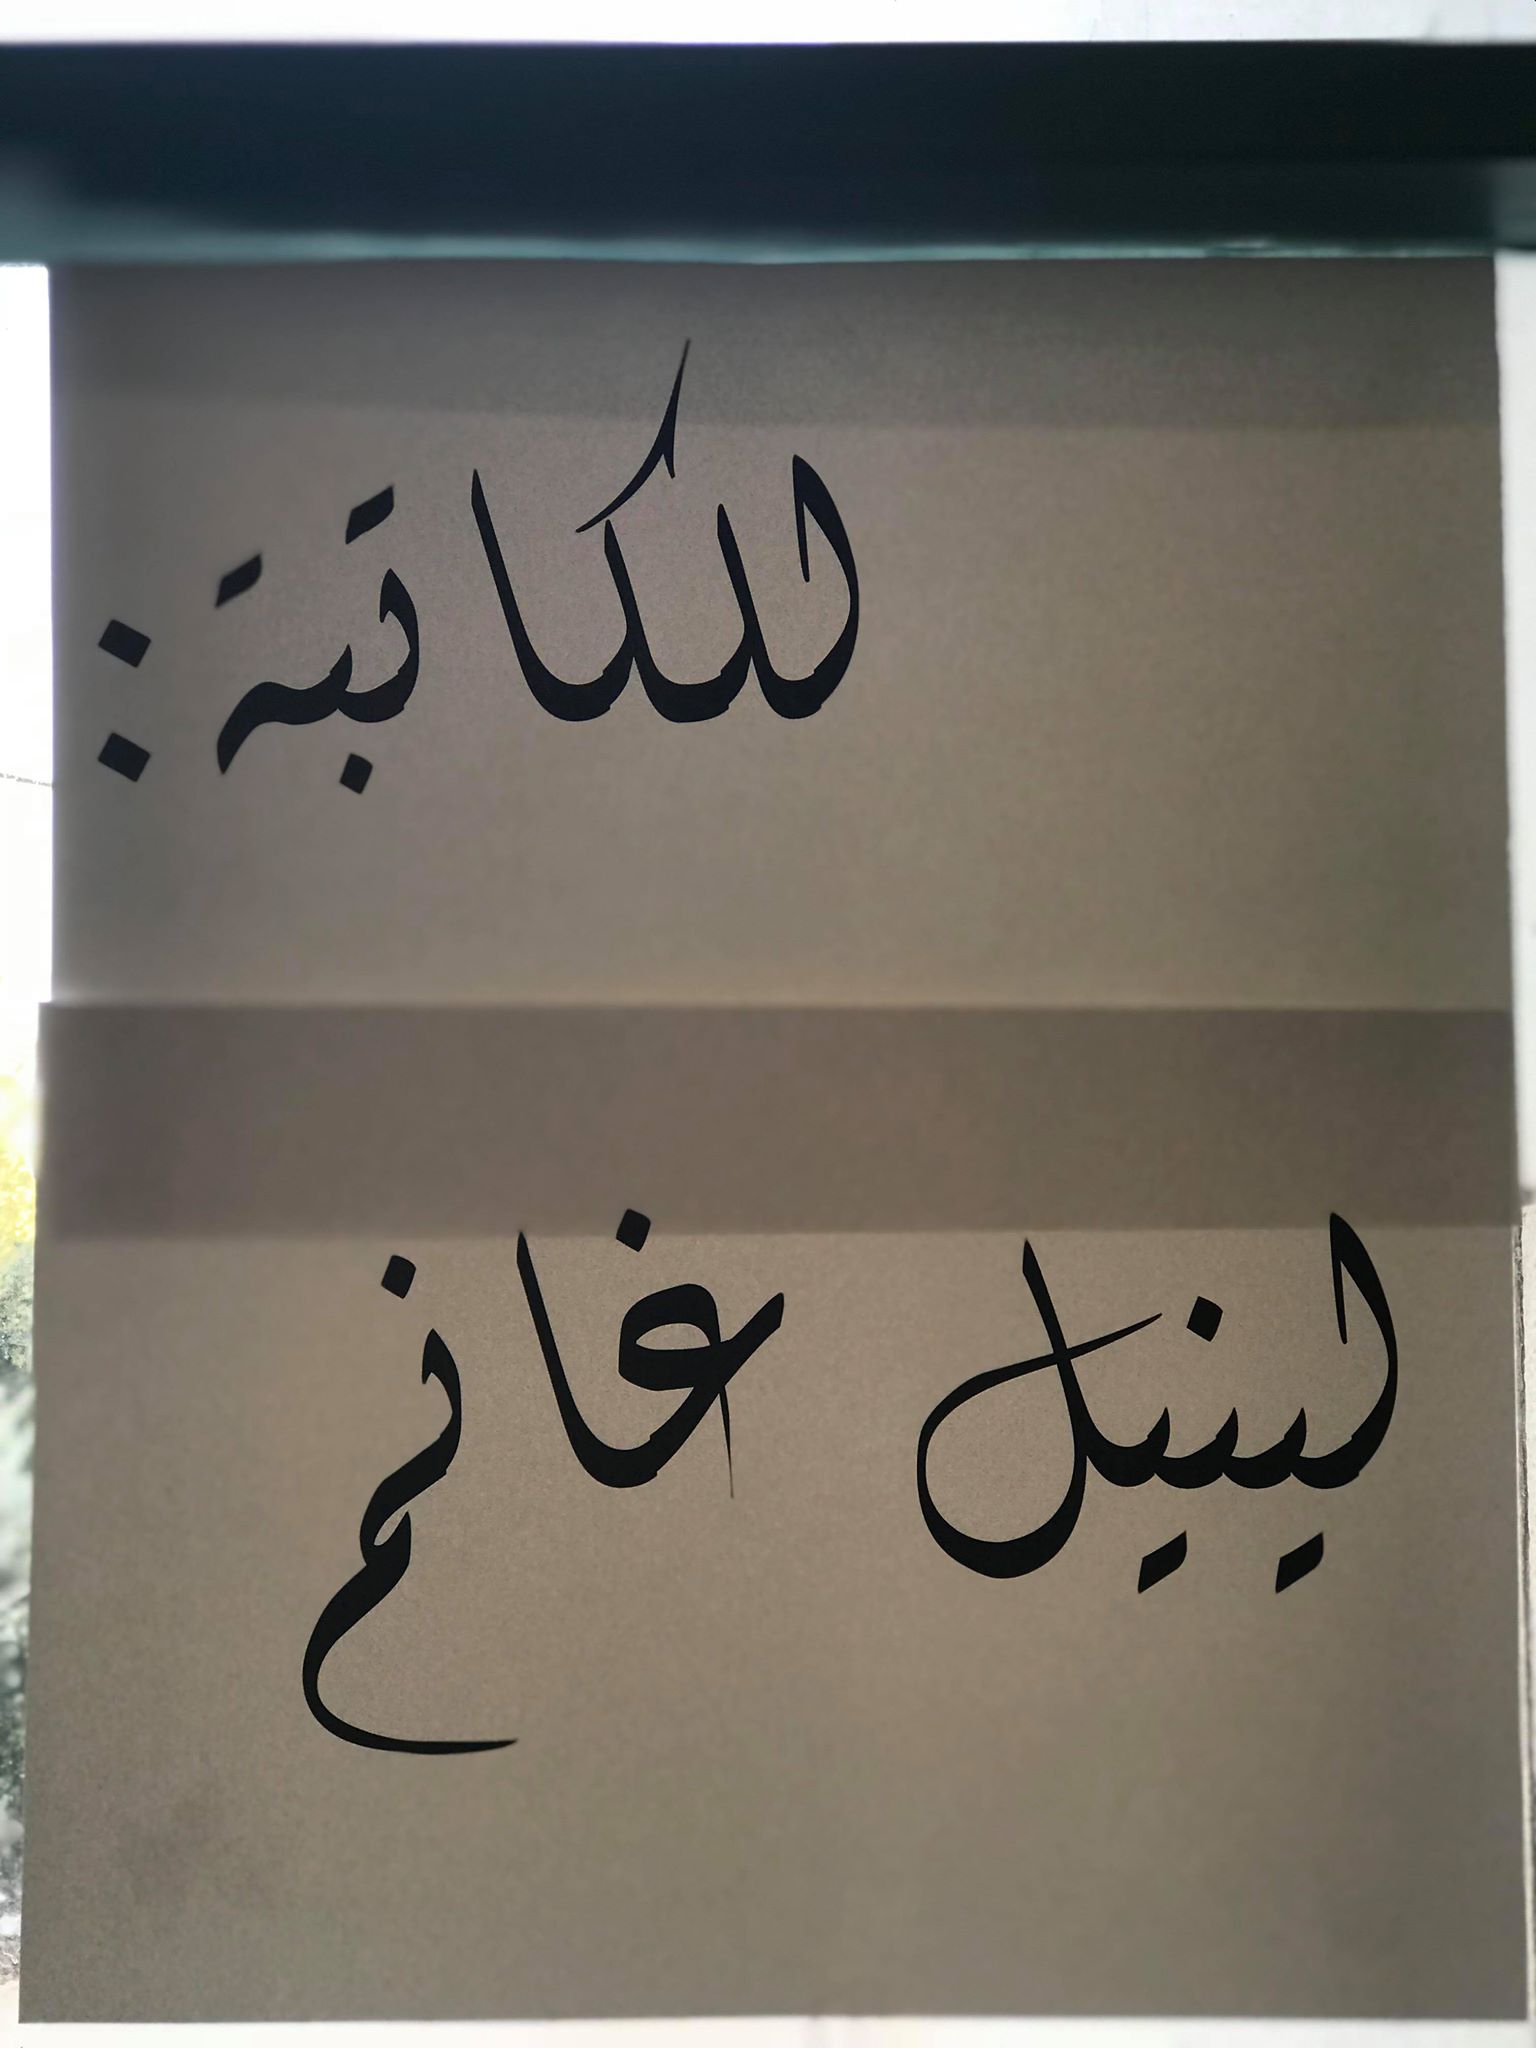 للكاتبة :
لينيل غانم